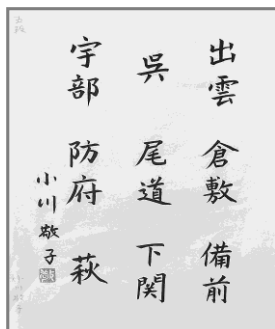 出雲 倉敷 備前
呉 尾道 下関
宇部 防府 萩
小川敬子